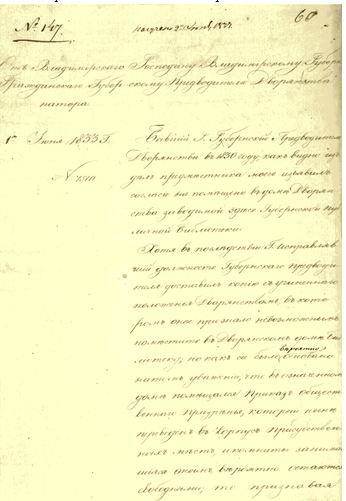 № 147.
60
Отъ Владимірскаго Господину Владимірскому Губерн
Гражданскаго Губер скому Предводителю Дворянства
натора
5 Іюня 1833 г.
Бывшій Г. Губернскій Предводитель
Дворянства въ 1830 году, какъ видно изъ
дѣлъ предмѣстника моего изъявилъ
согласіе на помѣщеніе въ домѣ Дворян
ства заводимой здѣсь Губернской пуб
личной библіотеки.
Хотя въ послѣдствіи Г. исправляв
шій должность Губернскаго предводи
теля доставилъ копію съ учиненнаго
положенія Дворянствомъ, въ кото
ромъ оное признало невозможнымъ
помѣстить въ Дворянскомъ домѣ биб
ліотеку; но какъ сіе было вѣроятно основано
на томъ уваженіи, что въ означенномъ
домѣ помѣщался Приказъ общест
веннаго Призрѣнія, который нынѣ
переведенъ въ Корпусъ Присутствен
ныхъ мѣстъ, и комнаты занимав
шіяся онымъ вѣроятно остаются
свободными; то признавая